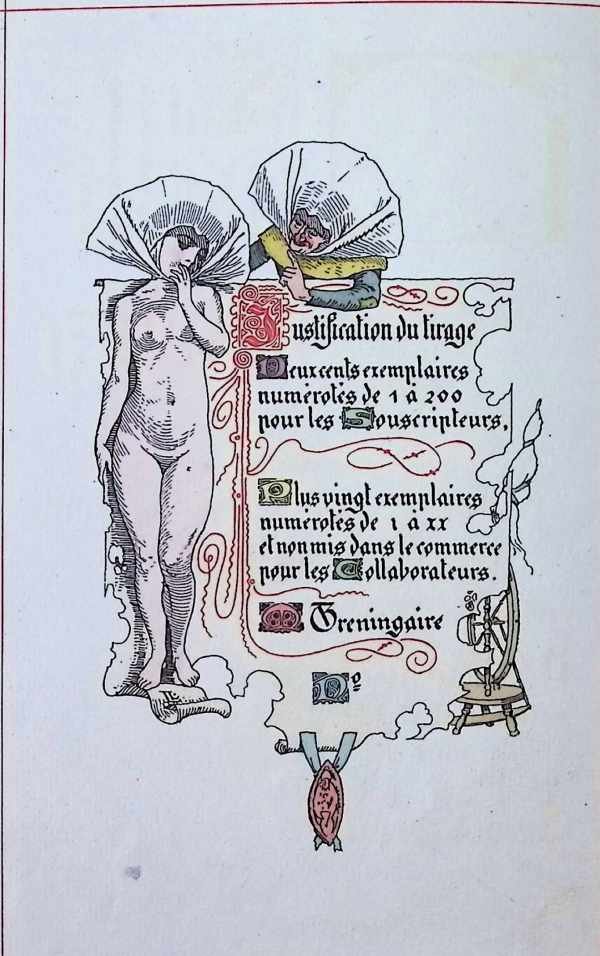 Justification du tirage
Deux cents exemplaires
numérotés de 1 à 200
pour les Souscripteurs,
Plus vingt exemplaires
numérotés de 1 à xx
et non mis dans le commerce
pour les Collaborateurs.
M Greningaire
Nº